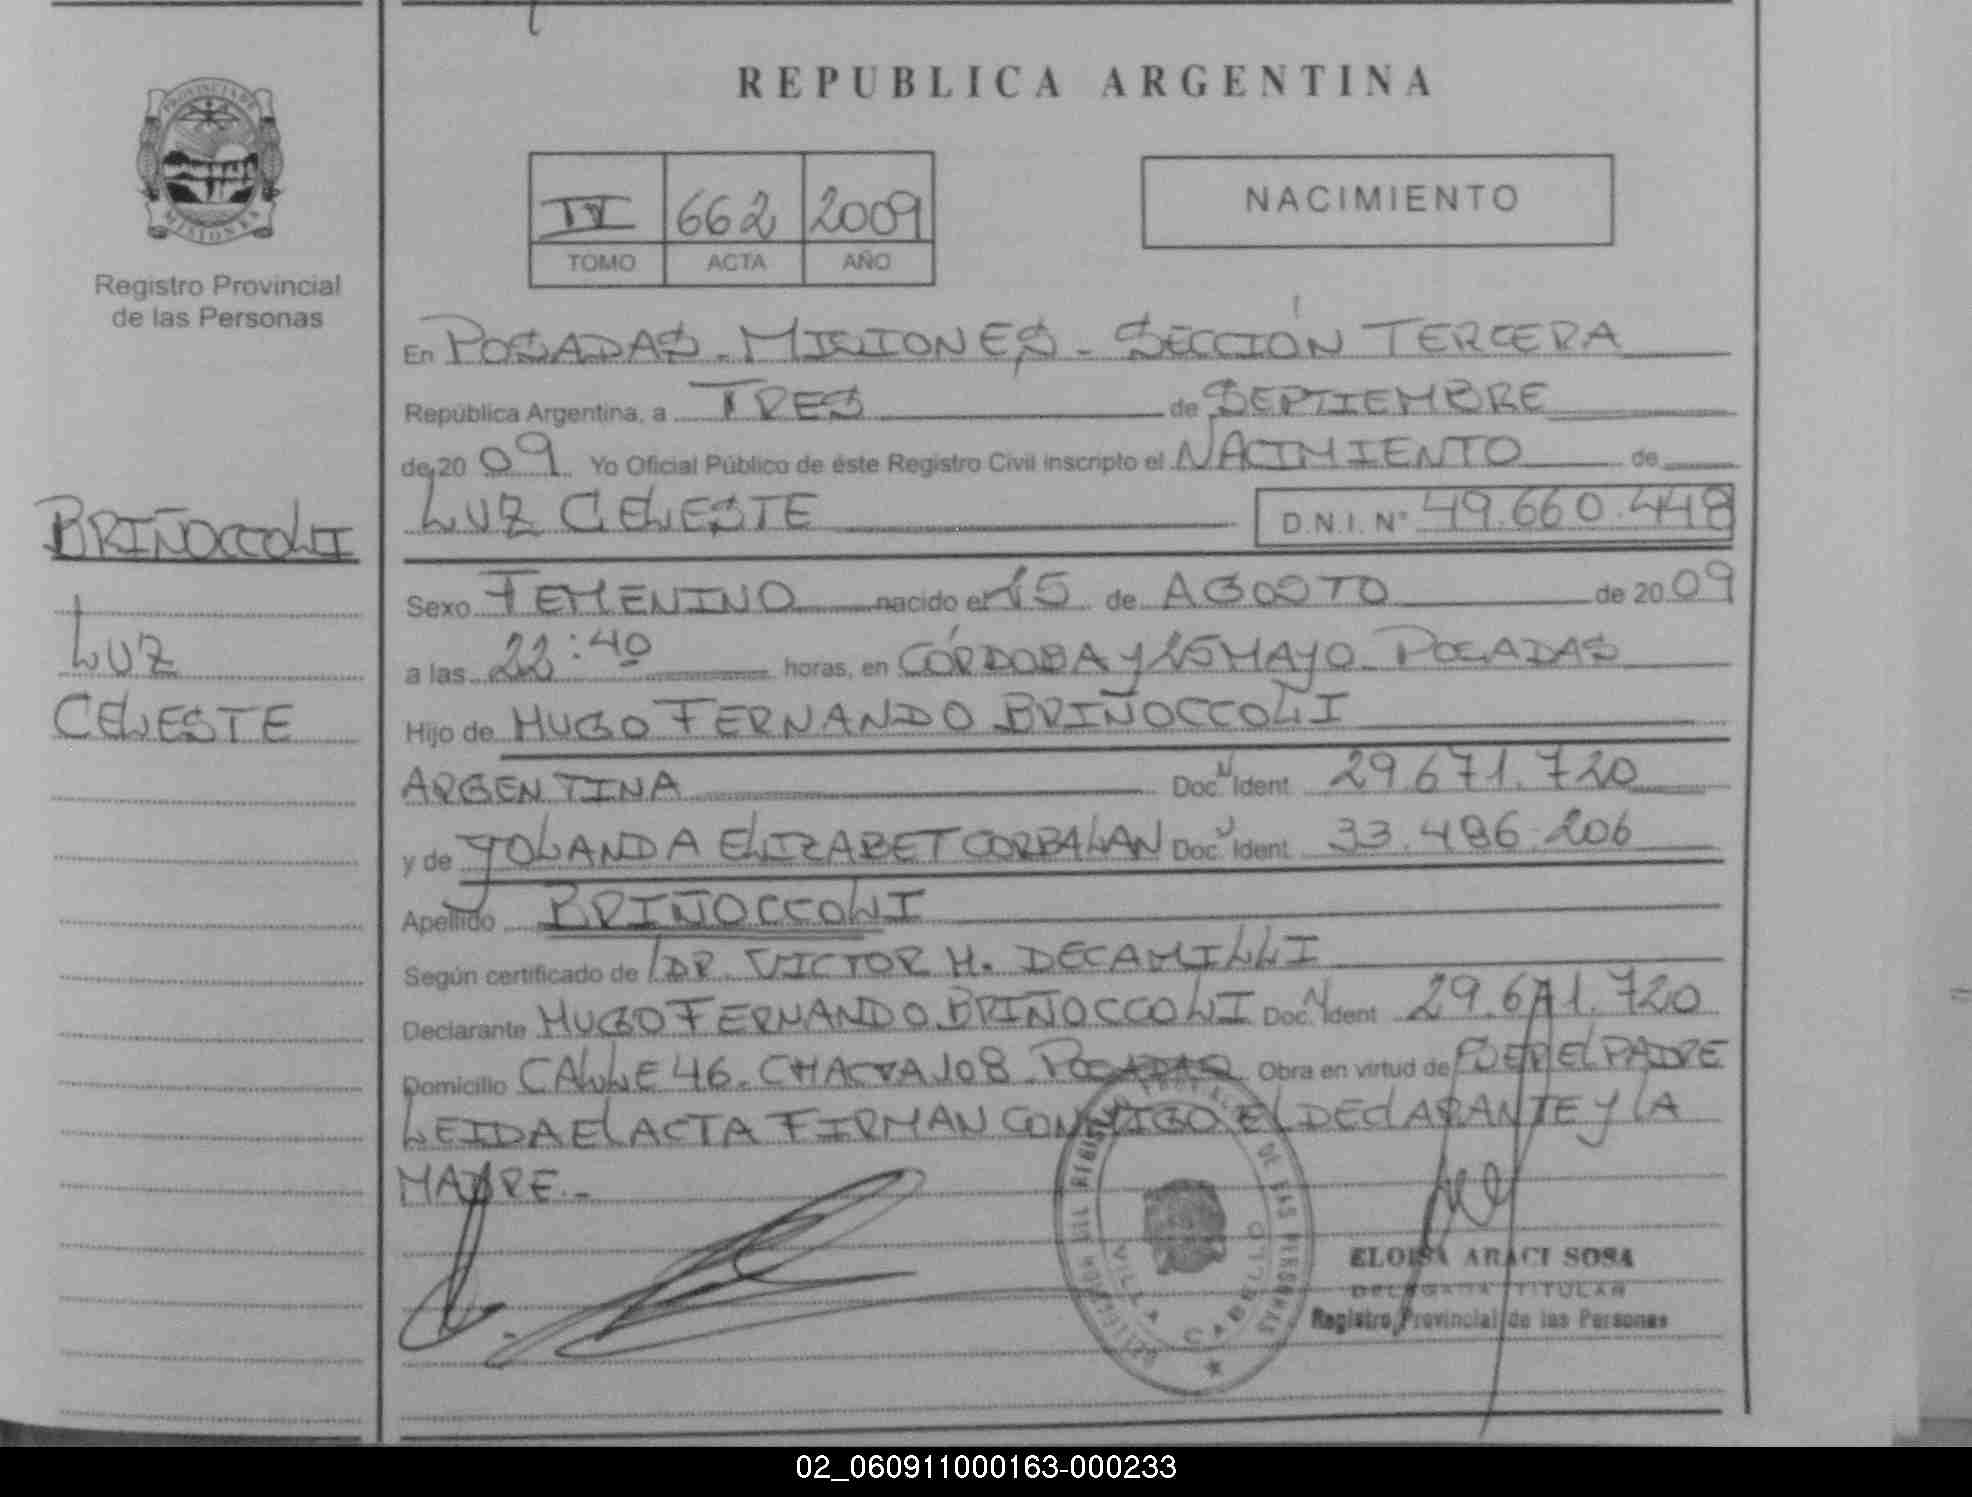 REPUBLICA ARGENTINA
PROVINCIA DE
MISIONES
Registro Provincial
de las Personas
IV 662 2009
TOMO ACTA AÑO
NACIMIENTO
En POSADAS - MISIONES - SECCIÓN TERCERA
República Argentina, a TRES de SEPTIEMBRE
de 20 09 Yo Oficial Público de éste Registro Civil inscripto el NACIMIENTO de
LUZ CELESTE D.N.I. N° 49.660.448
BRIÑOCCOLI
LUZ
CELESTE
Sexo FEMENINO nacido el 15 de AGOSTO de 20 09
a las 22:40 horas, en CÓRDOBA y 25 MAYO POSADAS
Hijo de HUGO FERNANDO BRIÑOCCOLI
ARGENTINA Doc. N Ident 29.671.720
y de YOLANDA ELIZABET CORBALAN Doc. N Ident 33.486.206
Apellido BRIÑOCCOLI
Según certificado de DR. VICTOR H. DECAMILLI
Declarante HUGO FERNANDO BRIÑOCCOLI Doc. N Ident 29.671.720
Domicilio CALLE 46. CHACRA 108 POSADAS Obra en virtud de POER EL PADRE
LEIDA EL ACTA FIRMAN CONMIGO EL DECLARANTE y LA
MADRE.-
DE LAS PERSONAS
VILLA CABELLO
ELOISA ARACI SOSA
DELEGADA TITULAR
Registro Provincial de las Personas
02_060911000163-000233